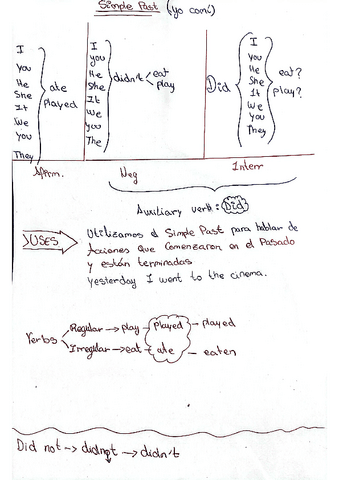 Simple Past (yo comí)
I
You
He
She
It
We
You
They
ate
played
Afirm.
I
you
He
She
It
We
You
The
didn't
eat
play
Neg
Did
I
You
He
She
It
We
You
They
eat?
play?
Interr
Auxiliary verb: Did
USES
Utilizamos el Simple Past para hablar de
Acciones que Comenzaron en el Pasado
y están terminadas
Yesterday I went to the cinema.
Verbs
Regular → play - played - played
Irregular → eat - ate - eaten
Did not → didnot → didn't